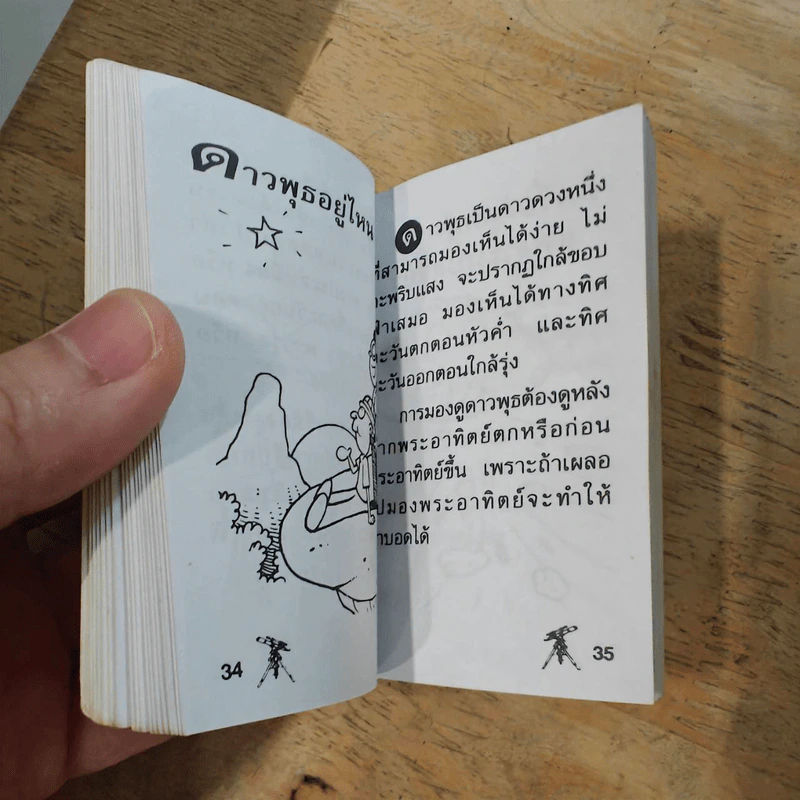 ดาวพุธอยู่ไหน
34
ดาวพุธเป็นดาวดวงหนึ่ง
ที่สามารถมองเห็นได้ง่าย ไม่
กะพริบแสง จะปรากฏใกล้ขอบ
ฟ้าเสมอ มองเห็นได้ทางทิศ
ตะวันตกตอนหัวค่ำ และทิศ
ตะวันออกตอนใกล้รุ่ง
การมองดูดาวพุธต้องดูหลัง
จากพระอาทิตย์ตกหรือก่อน
พระอาทิตย์ขึ้น เพราะถ้าเผลอ
ไปมองพระอาทิตย์จะทำให้
ตาบอดได้
35